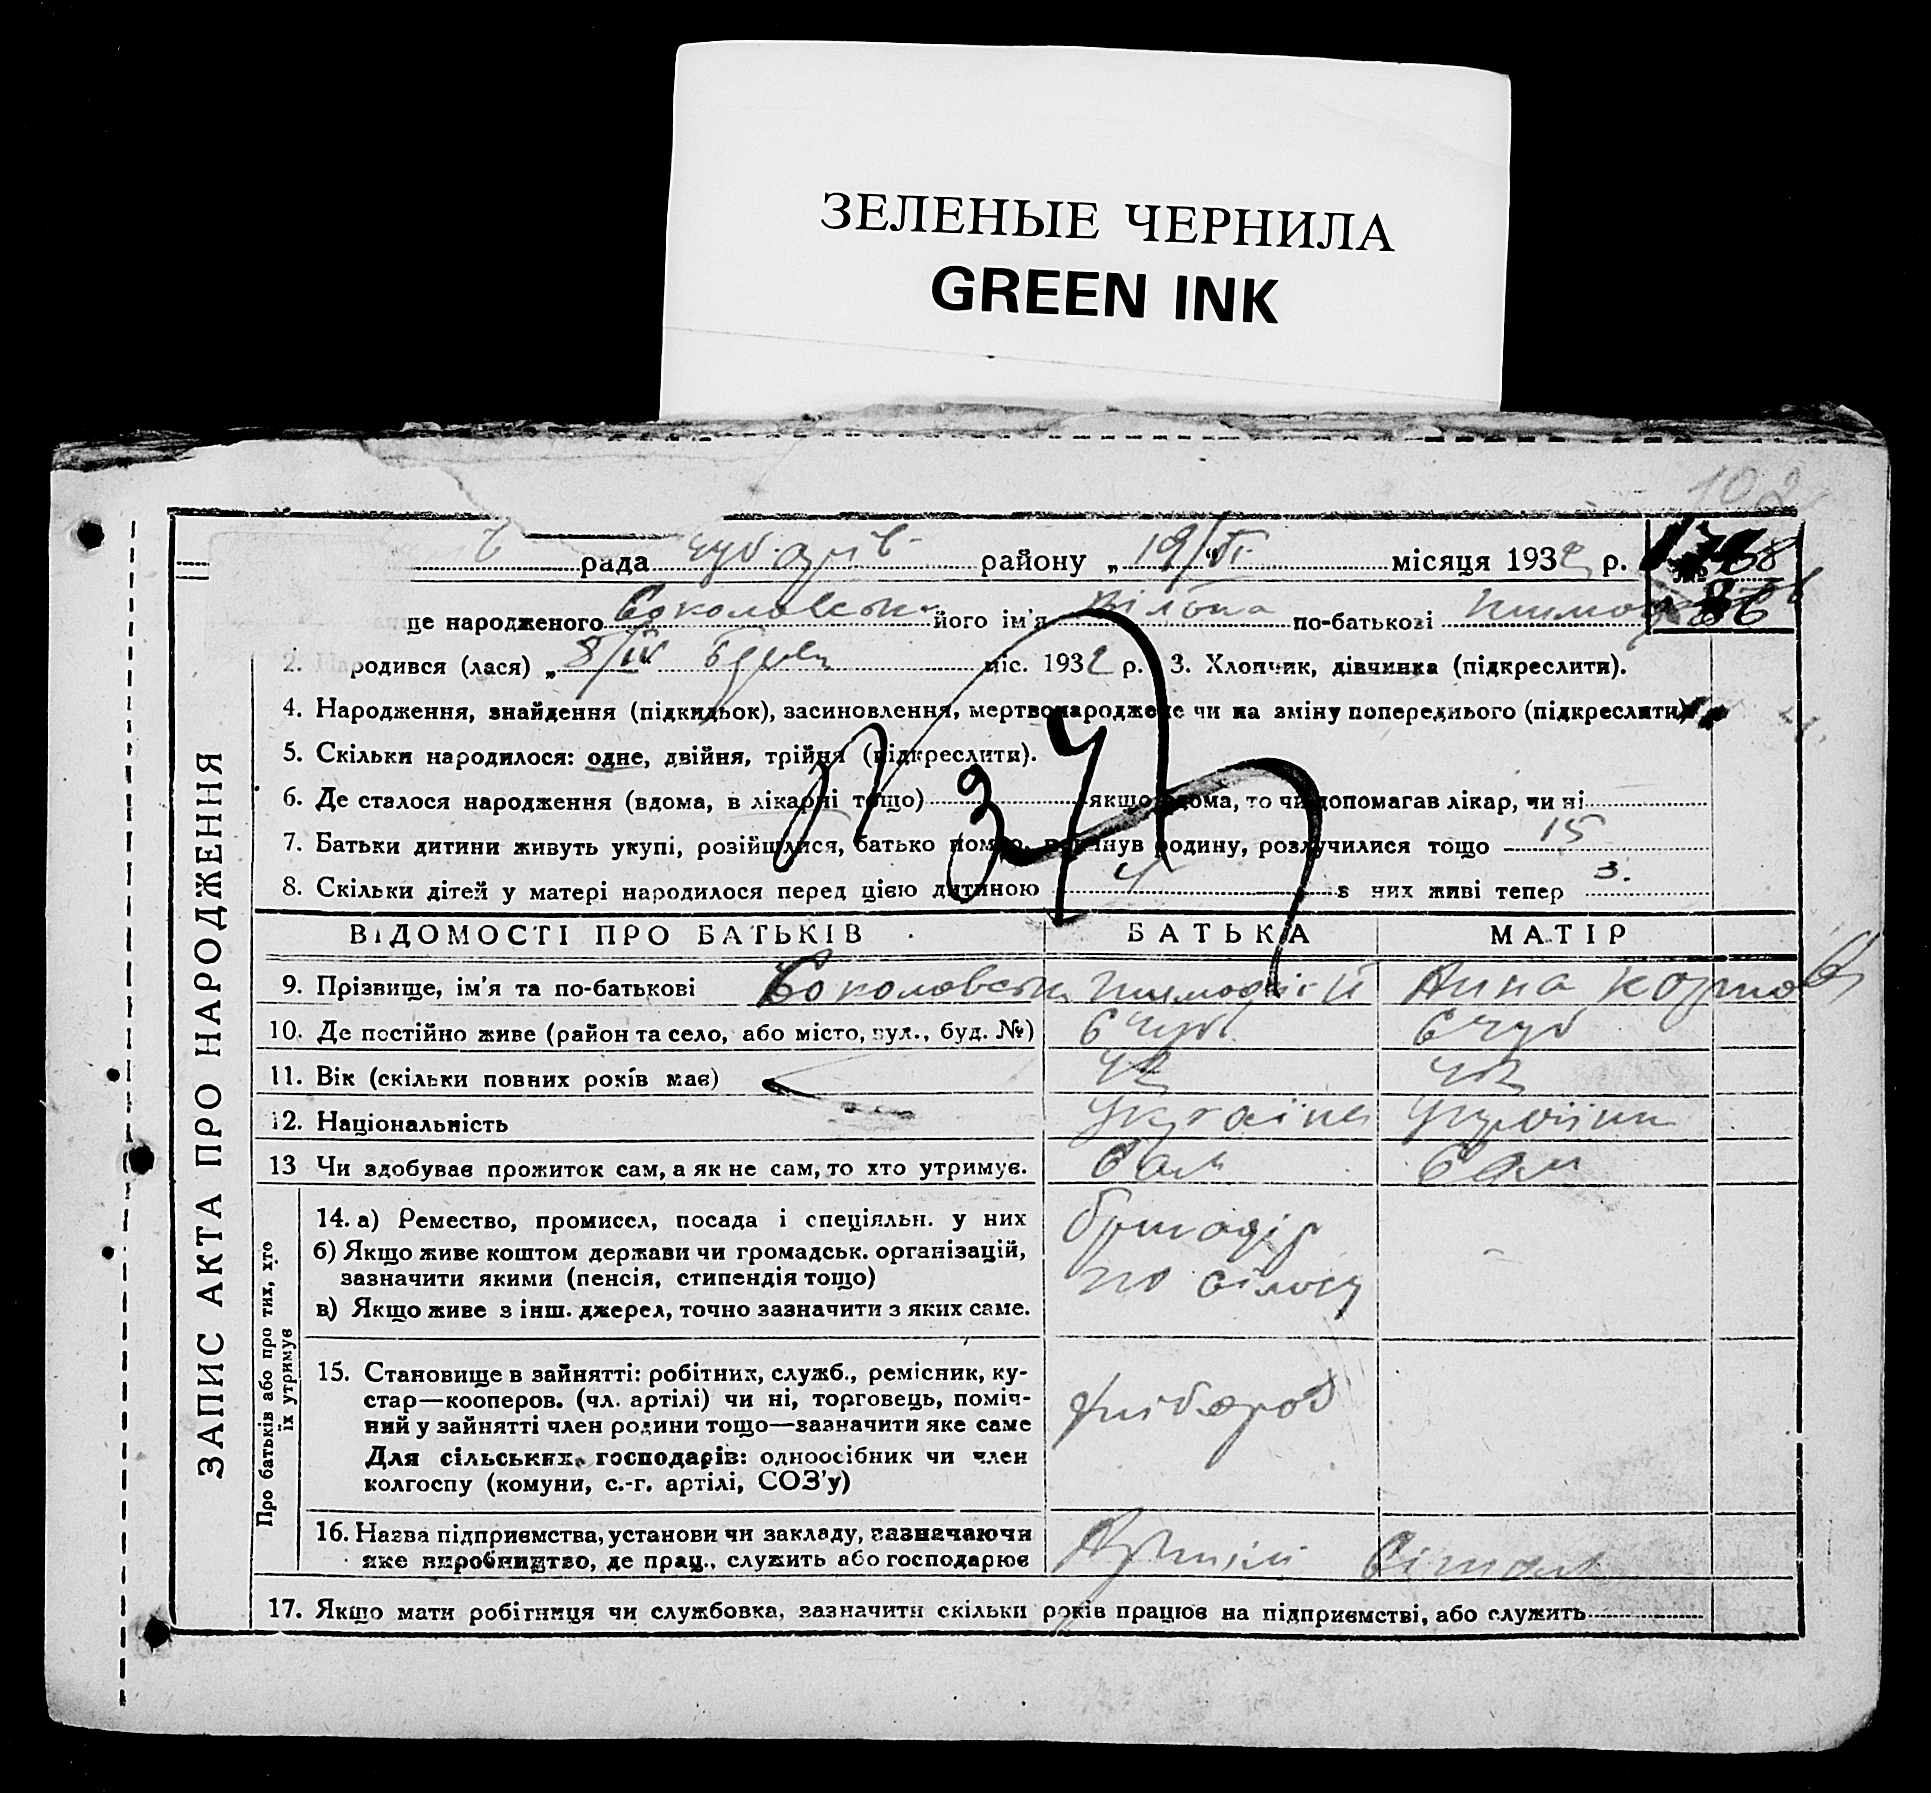 ЗЕЛЕНЫЕ ЧЕРНИЛА
GREEN INK
102
рада район​у „ 19/VI місяця 1932 р.
ще народженого Соколовськ його ім'я по-батькові
2. родився (лася) „ 8/IV міс. 1932 р. 3. Хлопчик, дівчинка (підкреслити).
4. Народження, знайдення (підкидьок), засиновлення, мертвонароджене чи на зміну попереднього (підкреслити)
5. Скільки народилося: одне, двійня, трійня (підкреслити).
6. Де сталося народження (вдома, в лікарні тощо) якщо вдома, то чи допомагав лікар, чи ні
7. Батьки дитини живуть укупі, розійшлися, батько помер, покинув родину, розлучилися тощо 15
8. Скільки дітей у матері народилося перед цією дитиною 4 з них живі тепер 3.
ЗАПИС АКТА ПРО НАРОДЖЕННЯ
ВІДОМОСТІ ПРО БАТЬКІВ БАТЬКА МАТІР
9. Прізвище, ім'я та по-батькові Соколовськ Анна
10. Де постійно живе (район та село, або місто, вул., буд. №)
11. Вік (скільки повних років має) 42
12. Національність Україне
13 Чи здобуває прожиток сам, а як не сам, то хто утримує. Сам Сам
Про батьків або про тих, хто
їх утримує
14. а) Ремество, промисел, посада і спеціяльн. у них
б) Якщо живе коштом держави чи громадськ. організацій,
зазначити якими (пенсія, стипендія тощо)
в) Якщо живе з інш. джерел, точно зазначити з яких саме.
бригадір
по
15. Становище в зайнятті: робітник, служб., ремісник, ку-
стар—кооперов. (чл. артілі) чи ні, торговець, поміч-
ний у зайнятті член родини тощо—зазначити яке саме
Для сільських господарів: одноосібник чи член
колгоспу (комуни, с.-г. артілі, СОЗ'у)
хлібороб
16. Назва підприємства, установи чи закладу, зазначаючи
яке виробництво, де прац., служить або господарює
Артілі
17. Якщо мати робітниця чи службовка, зазначити скільки років працює на підприємстві, або служить